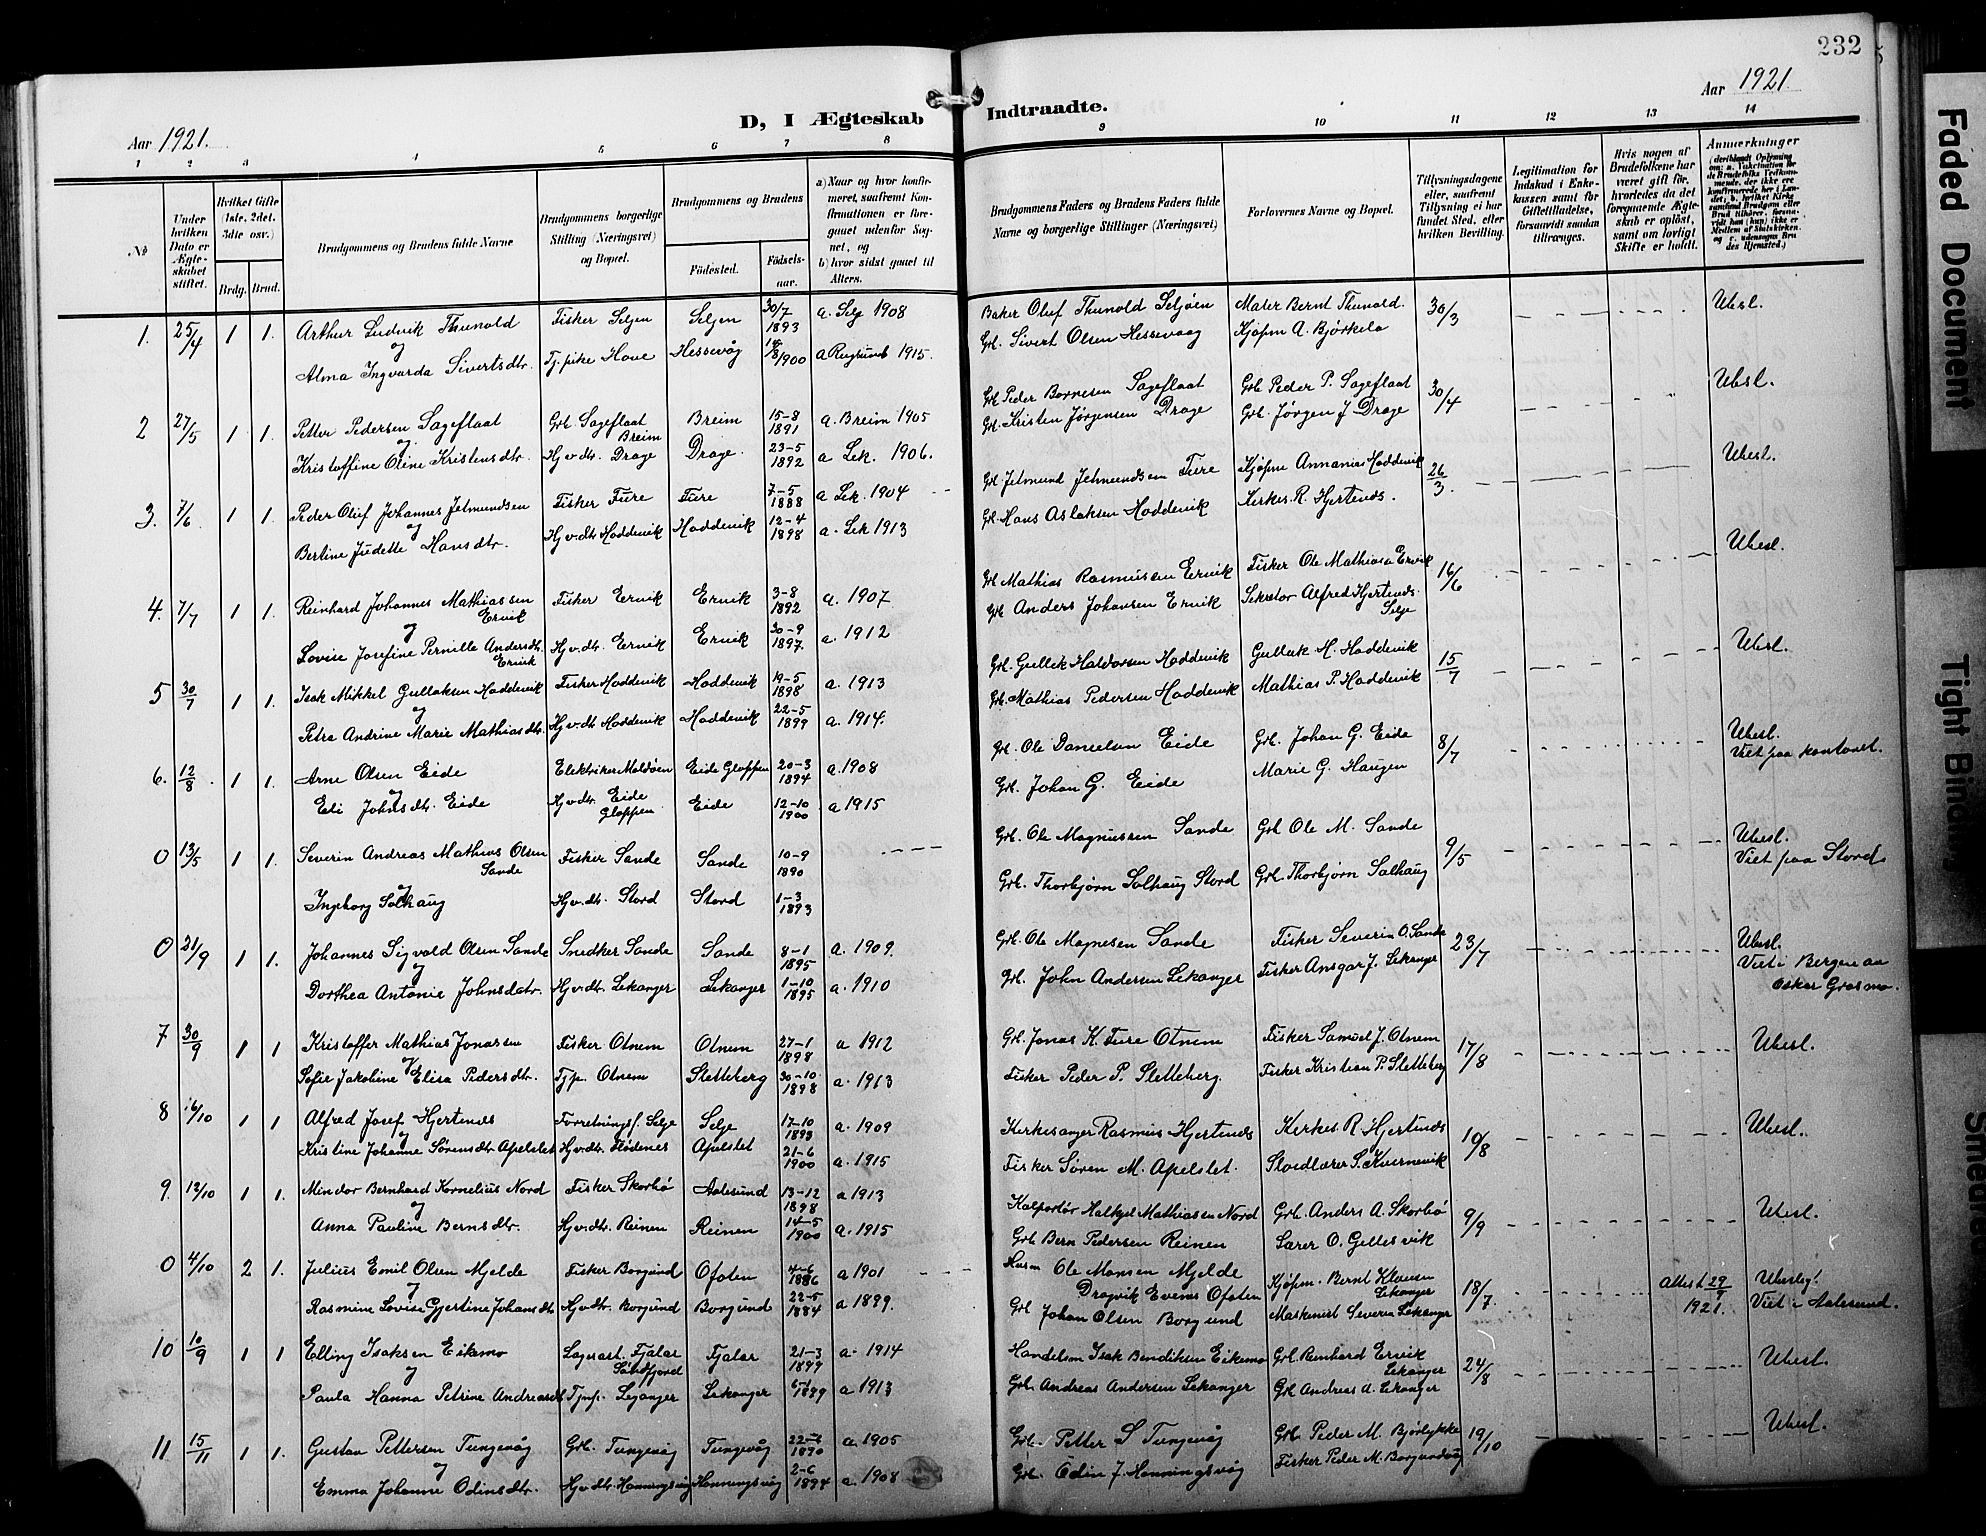 232
Aar 1921.
D, I Ægteskab Indtraadte.
Aar 1921.
1 2 3 4 5 6 7 8 9 10 11 12 13 14
№
Under hvilken Dato er Ægteskabet stiftet.
Hvilket Gifte (1ste, 2det, 3dte osv.)
Brdg. Brud.
Brudgommens og Brudens fulde Navne
Brudgommens borgerlige Stilling (Næringsvei) og Bopæl.
Brudgommens og Brudens
Fødested.
Fødselsaar.
a) Naar og hvor konfirmeret, saafremt Konfirmationen er foregaaet udenfor Sognet, og
b) hvor sidst gaaet til Alters.
Brudgommens Faders og Brudens Faders fulde Navne og borgerlige Stillinger (Næringsvei)
Forlovernes Navne og Bopæl.
Tillysningsdagene eller, saafremt Tillysning ei har fundet Sted, efter hvilken Bevilling.
Legitimation for Indskud i Enkekassen samt for Giftetilladelse, forsaavidt saadan tiltrænges.
Hvis nogen af Brudefolkene har været gift før, hvorledes da det foregaaende Ægteskab er opløst, samt om lovligt Skifte er holdt.
Anmerkninger
1. 25/4 1 1. Arthur Ludvik Thunold Fisker Seljen Seljen 30/7 1893 a. Selj 1908 Baker Oluf Thunold Seljöen Maler Bernt Thunold. 30/3 Ubesl.
og
Alma Ingvarda Sivertsdtr. Tj. pike Hove Hessevåg 1900 a Rugsund 1915. Grb. Sivert Olsen Hessevaag Kjøpm A. Bjørkelo
2 27/5 1 1. Petter Pedersen Sageflaat Grb. Sageflaat Breim Breim 15-8 1891 a. Breim 1905 Grb Peder Bornesen Sageflaat Grb Peder P. Sageflaat 30/4 Ubesl.
og
Kristoffine Oline Kristensdtr. Hjv.dtr. Drage Drage. 23-5 1892 a Lek. 1906. Grb. Kristen Jørgensen Drage Grb. Jørgen J Drage
3. 7/6 1 1. Peder Oluf Johannes Jetmundsen Fisker Fure Fure 7-5 1888 a Lek. 1904 Grb Jetmund Jetmundsen Fure Kjøpm Annanias Hoddevik 26/3 Ubesl.
og
Bertine Judette Hansdtr. Hjv.dtr Hoddevik Hoddevik 12-4 1898 a. Lek 1913 Grb. Hans Aslaksen Hoddevik Kirkes. R. Hjertenes.
4. 7/7 1 1. Reinhard Johannes Mathiassen Ervik Fisker Ervik Ervik 3-8 1892 a. 1907 Grb Mathias Rasmussen Ervik Fisker Ole Mathiasen Ervik 16/6 Ubesl.
og
Lovise Josefine Pernille Andersdtr. Ervik Hjv.dtr. Ervik Ervik 30-9 1897. a. 1912 Grb Anders Johansen Ervik Sekretær Alfred Hjertenes Selje
5 30/7 1 1. Isak Mikkel Gullaksen Hoddevik Fisker Hoddevik Hoddevik 19-5 1898 a. 1913 Grb. Gullek Haldorsen Hoddevik Gullak H. Hoddevik 15/7 Ubesl.
og
Petra Andrine Marie Mathiasdtr. Hjv.dtr Hoddevik Hoddevik 22-5 1899 a. 1914. Grb. Mathias Pedersen Hoddevik Mathias P. Hoddevik
6. 12/8 1 1. Arne Olsen Eide Elektriker Moldøen Eide Gloppen 20-3 1894 a. 1908 Grb. Ole Danielsen Eide Grb. Johan G. Eide 8/7 Ubesl.
Viet paa kontoret.
og
Eli Johnsdtr. Eide Hjv.dtr. Eide Gloppen Eide 12-10 1900 a 1915 Grb. Johan G. Eide Marie G. Haugen
0 13/5 1 1. Severin Andreas Mathias Olsen Sande Fisker Sande Sande 10-9 1890 Grb. Ole Magnussen Sande Grb Ole M. Sande 9/5 Ubesl.
Viet paa Stord.
og
Ingborg Solhaug Hjv.dtr. Stord Stord 1-3 1893 Grb. Thorbjørn Solhaug Stord Grb. Thorbjørn Solhaug
0 21/9 1 1. Johannes Sigvald Olsen Sande Snedker Sande Sande 8-1 1895 a. 1909. Grb. Ole Magnesen Sande Fisker Severin O. Sande 23/7 Ubesl.
Viet i Bergen av Oskar Grasmo.
og
Dorthea Antonie Johnsdatr. Hjv.dtr. Lekanger Lekanger 1-10 1895 a. 1910 Grb. John Andersen Lekanger Fisker Ansgar J. Lekanger
7 30/9 1 1 Kristoffer Mathias Jonassen Fisker Otnem Otnem 27-1 1898 a 1912 Grb. Jonas K. Fure Otnem Fisker Samuel J. Otnem 17/8 Ubesl.
og
Sofie Jakobine Elisa Pedersdtr. Tjp. Otnem Sletteberg 30-10 1898 a. 1913 Fisker Peder P. Sletteberg. Fisker Kristian P. Sletteberg
8 6/10 1 1 Alfred Josef Hjertenes Forretningsf. Selje Selje 17-10 1893 a. 1909 Kirkesanger Rasmus Hjertenes Kirkes R. Hjertenes 10/8 Ubesl.
og
Kristine Johanne Sørensdtr Apelset Hjv.dtr. Hødenes Apelstet 21-6 1900 a. 1915 Fisker Søren M. Apelstet.
9. 12/10 1 1. Mindor Bernhard Kornelius Nord Fisker Skorbø Aalesund 13-12 1898 a 1913 Kolportør Halkjel Mathiasen Nord Grb. Anders A. Skorbø 9/9 Ubesl.
og
Anna Pauline Bernsdtr. Hjv.dtr. Reinen Reinen 14-5 1900 a. 1915 Grb Bern Pedersen Reinen Lærer O. Gillesvik
0 4/10 2 1. Julius Emil Olsen Mjelde Fisker Borgund Ofoten 4-6 1886 a 1901 Husm Ole Monsen Mjelde Dragvik Evenes Ofoten Kjøpm. Bernt Klausen Lekanger 18/7. Attest 29/9 1921. Ubeslegt.
Viet i Aalesund.
og
Rasmine Lovise Gjertine Johansdtr Hjv.dtr. Borgund Borgund 22-5 1884 a 1899. Grb Johan Olsen Borgund Maskinist Severin Lekanger
10 10/9 1 1 Elling Isaksen Eikemo Fjalar Fjalar 21-3 1899 a. 1914 Handelsm Isak Bendiksen Eikemo Grb. Reinhard Ervik Lekanger 24/8 Ubesl.
og
Paula Hanna Petrine Andreasdt Lekanger 1899 a 1913 Grb. Andreas Andersen Lekanger Grb Andreas A. Lekanger
11 15/11 1 1. Gustav Pettersen Tungevåg Grb. Tungevåg Tungevåg 1890 a. 1905 Grb. Petter S Tungevåg Grb. Peder M. Bjørlykke 19/10 Ubesl.
og
Emma Johanne Odinsdtr. Hjv.dtr. Honningsvåg Honningsvåg 2-6 1894 a. 1908 Grb. Odin J. Honningsvåg Fisker Peder M. Borgundvåg
Faded Document
Tight Binding